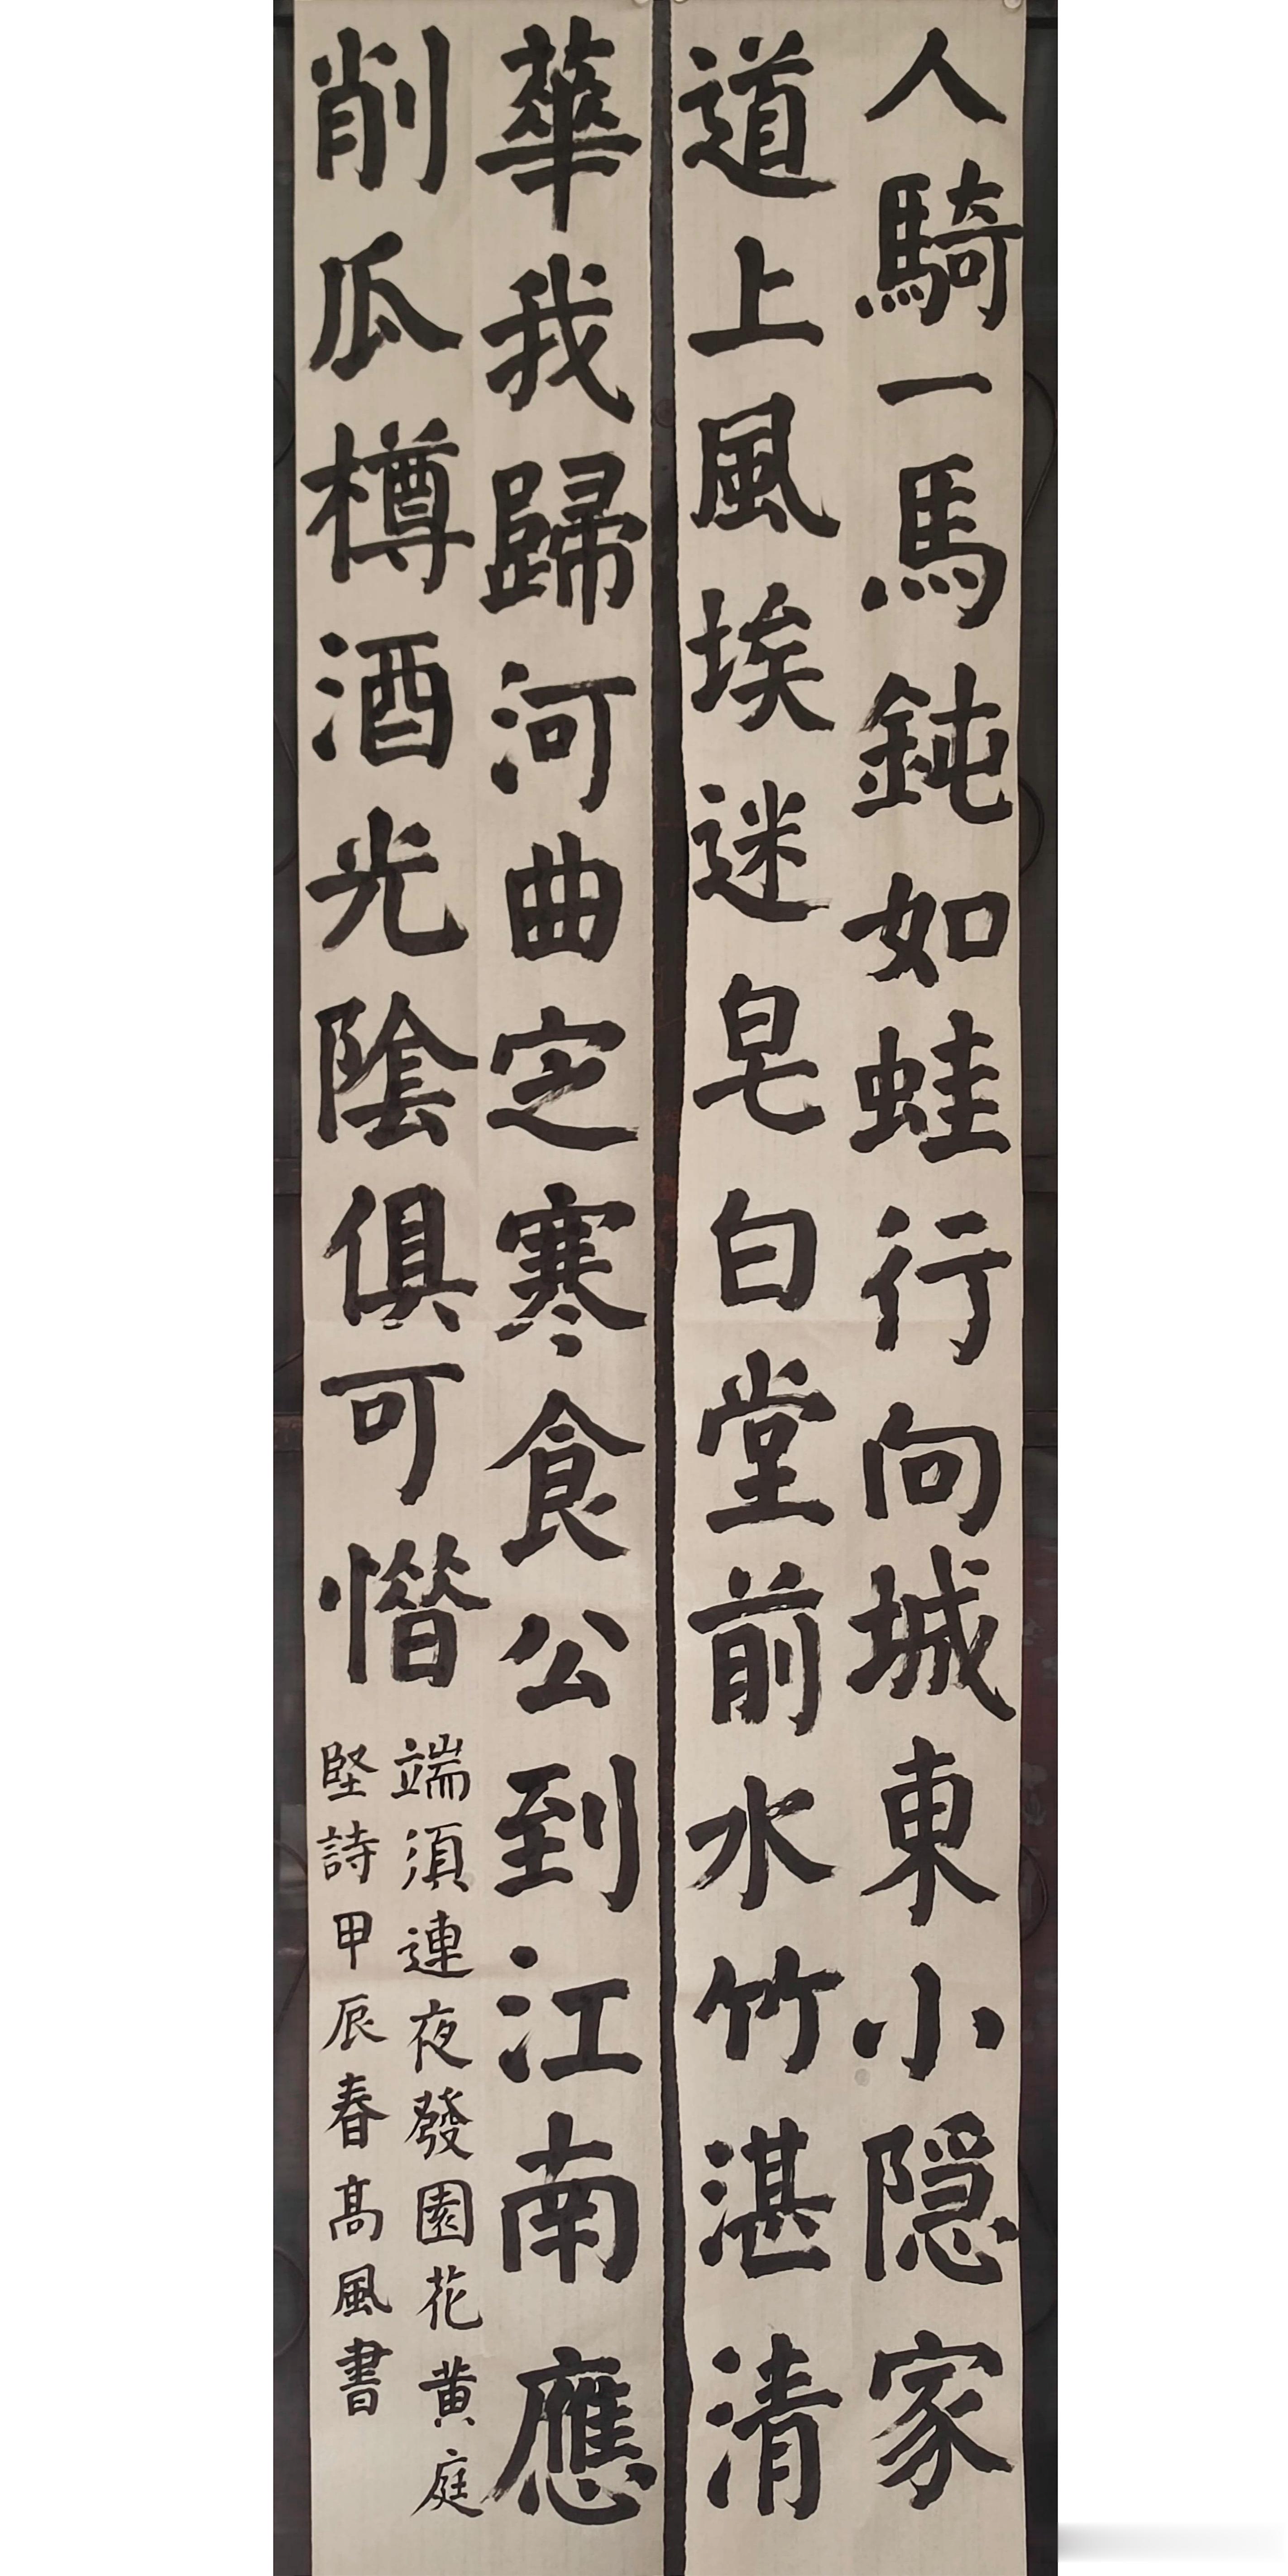 人騎一馬鈍如蛙行向城東小隱家
道上風埃迷皂白堂前水竹湛清
華我歸河曲定寒食公到江南應
削瓜樽酒光陰俱可惜
端須連夜發園花黄庭
堅詩甲辰春高風書